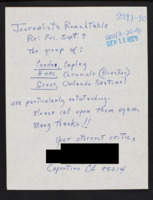 2471-90
Journalists Roundtable
Re: Fri. Sept. 7
The group of:
Condon, Copley
Hope, Chronicle (Director)
Greer, Orlando Sentinel
are particularly outstanding.
Please call upon them again.
Many thanks!!
Your sternest critic,
Cupertino CA 95014